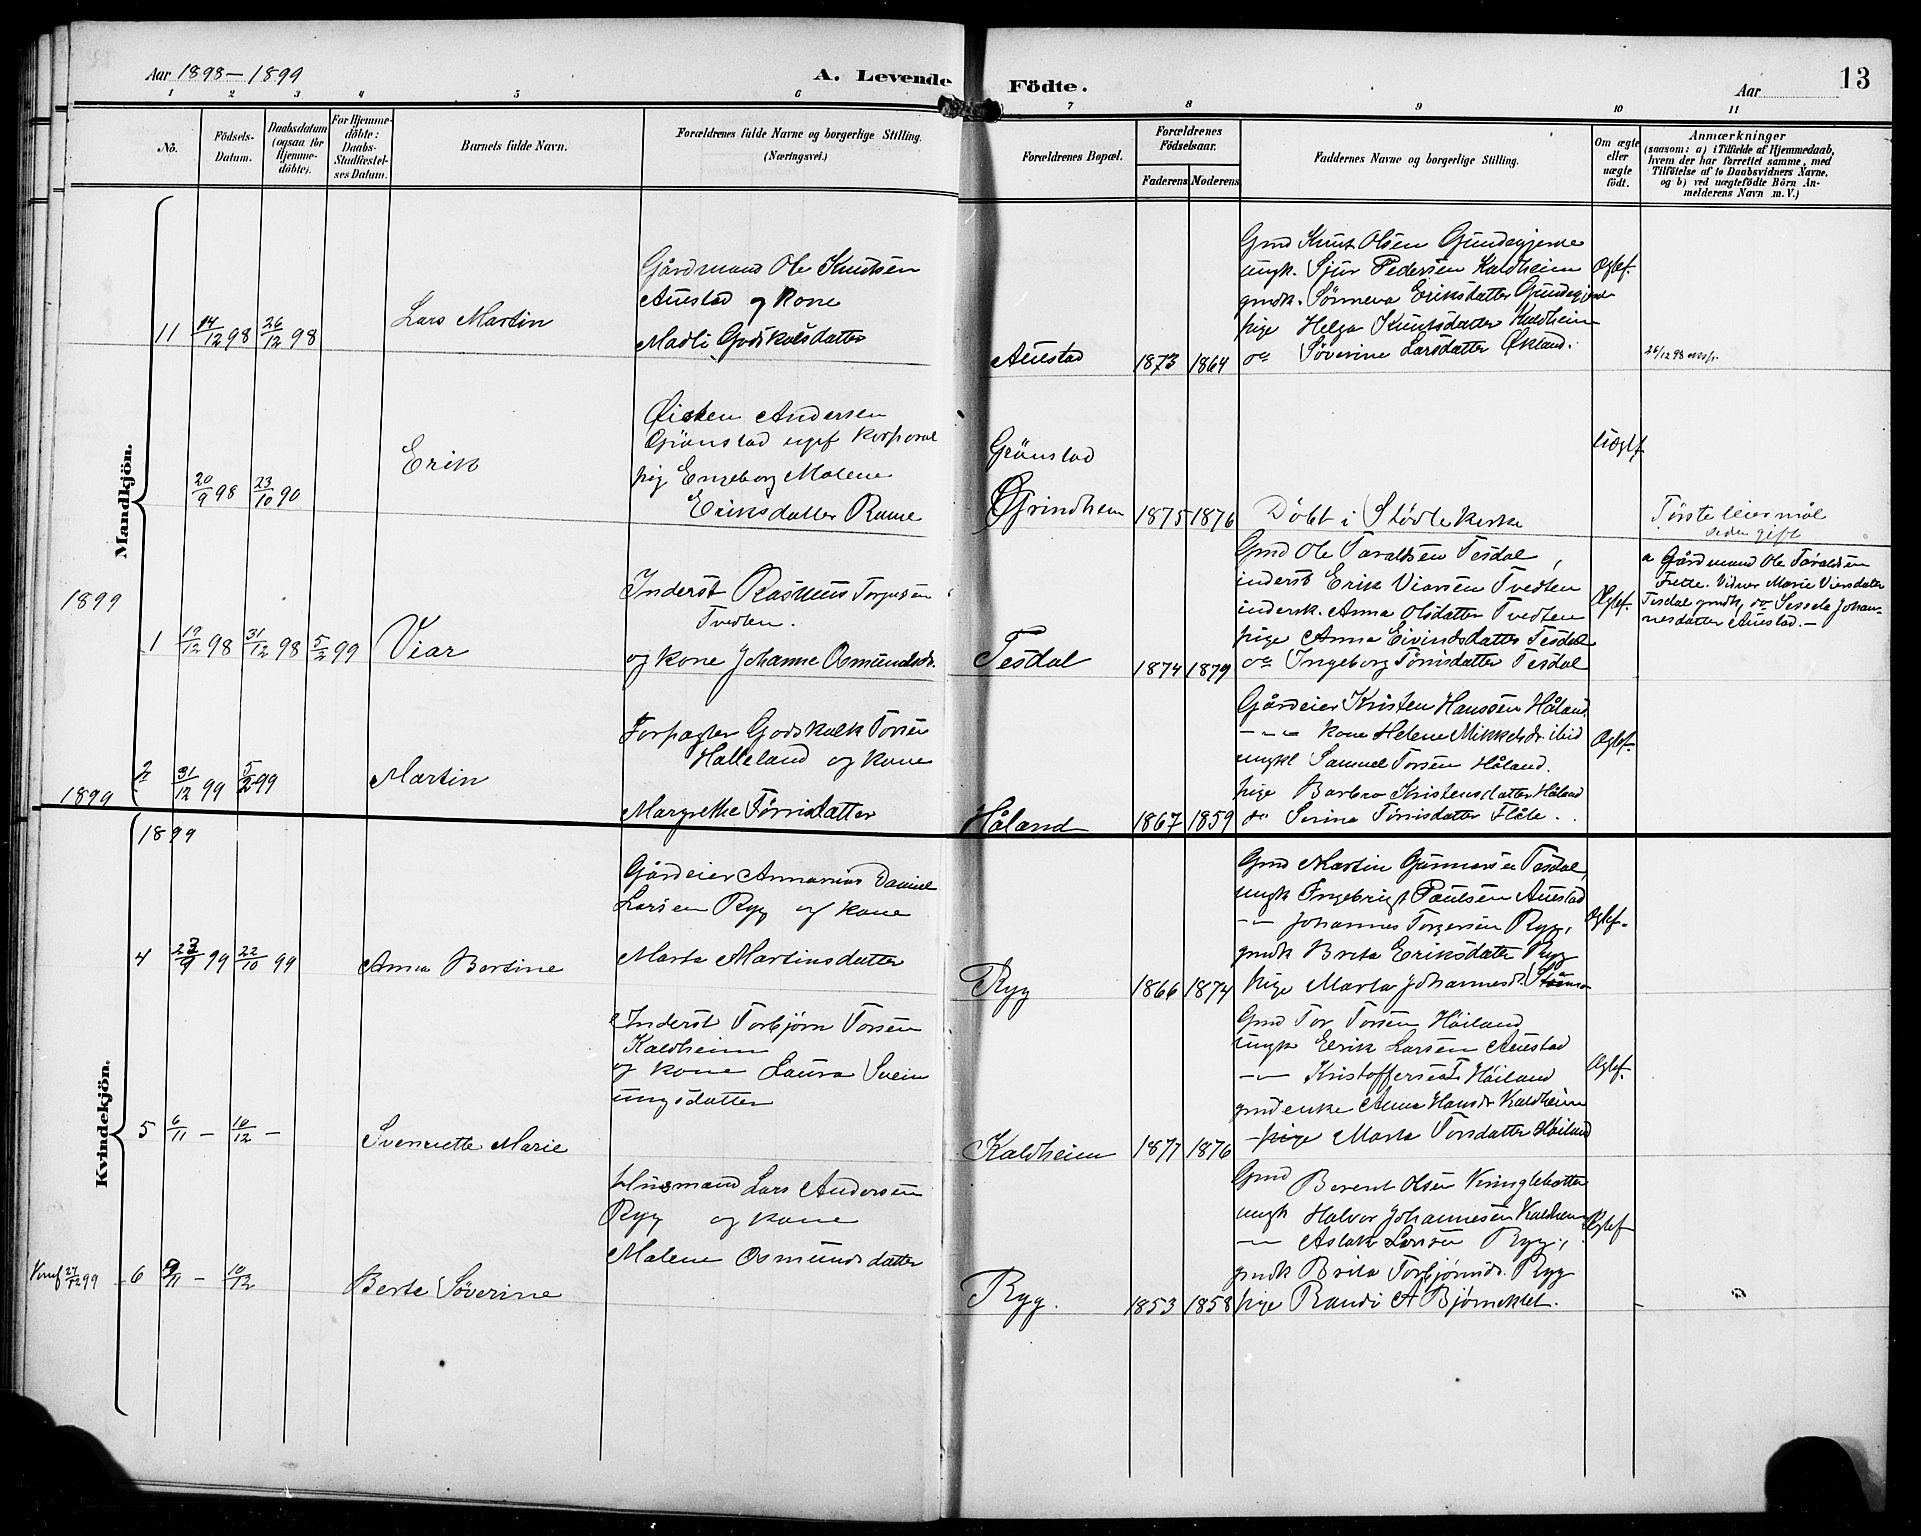 Aar 1898-1899
A. Levende Födte.
Aar
13
1 2 3 4 5 6 7 8 9 10 11
No.
Födsels-Datum.
Daabsdatum (ogsaa för Hjemme-döbte).
For Hjemme-döbte: Daabs-Stadfæstel-ses Datum.
Barnets fulde Navn.
Forældrenes fulde Navne og borgerlige Stilling.
(Næringsvei.)
Forældrenes Bopæl.
Forældrenes Födselsaar.
Faderens Moderens
Faddernes Navne og borgerlige Stilling.
Om ægte eller uægte födt.
Anmærkninger
(saasom: a) i Tilfælde af Hjemmedaab,
hvem der har forrettet samme, med
Tilföielse af to Daabsvidners Navne,
og b) ved uægtefödte Börn An-
melderens Navn m. V.)
Mandkjön.
11 14/12 98 26/12 98
Lars Martin
Gårdmand Ole Knutsen
Auestad og kone
Madli Godskalsdatter
Auestad
1873 1864
Gmd Knut Olsen
ungk. Sjur Pedersen Kaldheim
gmdk. Sönneva Eriksdatter
pige Helga Knutsdatter Kaldheim
do Söverine Larsdatter Økland.
Ægtef.
26/12 98
20/9 98 23/10 90
Erik
Andersen
Grönstad korporal
pig Engeborg Malene
Eriksdatter Rame
Grönstad
Grindhem
1875 1876
Döbt i Stödle kirke
Uægtf
Förste leiermål
siden gift
1899
1 19/12 98 31/12 98 5/2 99
Viar
Inderst Rasmus Torgersen
Tvedten.
og kone Johanne Osmundsdr.
Tesdal
1874 1879
Gmd Ole Taraldsen Tesdal,
inderst Erik Viarsen Tvedten
indersk. Anna Olsdatter Tvedten
pige Anna Eivindsdatter Tesdal
do Ingeborg Törrisdatter Tesdal
Ægtef.
a Gårdmand Ole Taraldsen
Frette. Vidner Marie Viersdatter
Tesdal gmdk, do Sessela Johan-
nesdatter Auestad. -
1899
2 31/12 99 5/2 99
Martin
Forpagter Godskalk Torsen
Halleland og kone
Margrethe Törrisdatter
Håland
1867 1859
Gårdeier Kristen Hanssen Håland
- - - kone Helene Mikkelsdr. ibid
ungkl Samuel Torsen Håland.
pige Barbro Kristensdatter Håland
do Serina Törrisdatter Flåte.
Ægtef.
Kvindekjön.
1899
4 23/9 99 22/10 99
Anna Bertine
Gårdeier Annanias Daniel
Larsen Ryg og kone
Marta Martinsdatter
Ryg
1866 1874
Gmd Martin Gunnarsen Tesdal,
ungk Ingebrigt Paulsen Auestad
- - Johannes Torgersen Ryg,
gmdk Brita Eriksdatter Ryg
pige Marta Johannesdr.
Ægtef.
5 6/11 - 10/12 -
Svennette Marie
Inderst Torbjørn Torsen
Kaldheim
og kone Laura Svein
ungsdatter
Kaldheim
1877 1876
Gmd Tor Torsen Höiland
ungk Eerik Larsen Auestad
- - Kristoffersen T Höiland
gmdenke Anna Hansdr Kaldheim
pige Marta Torsdatter Höiland
Ægtef.
27/12 99 6 9/11 - 10/12
Berte Söverine
Husmand Lars Andersen
Ryg og kone
Malene Osmundsdatter
Ryg.
1853 1858
Gmd Berent Olsen
ungk Halvor Johannesen Kaldheim
- - Aslak Larsen Ryg,
gmdk Brita Torbjörnsdr. Ryg
pige Randi A Bjørneklet.
Ægtef